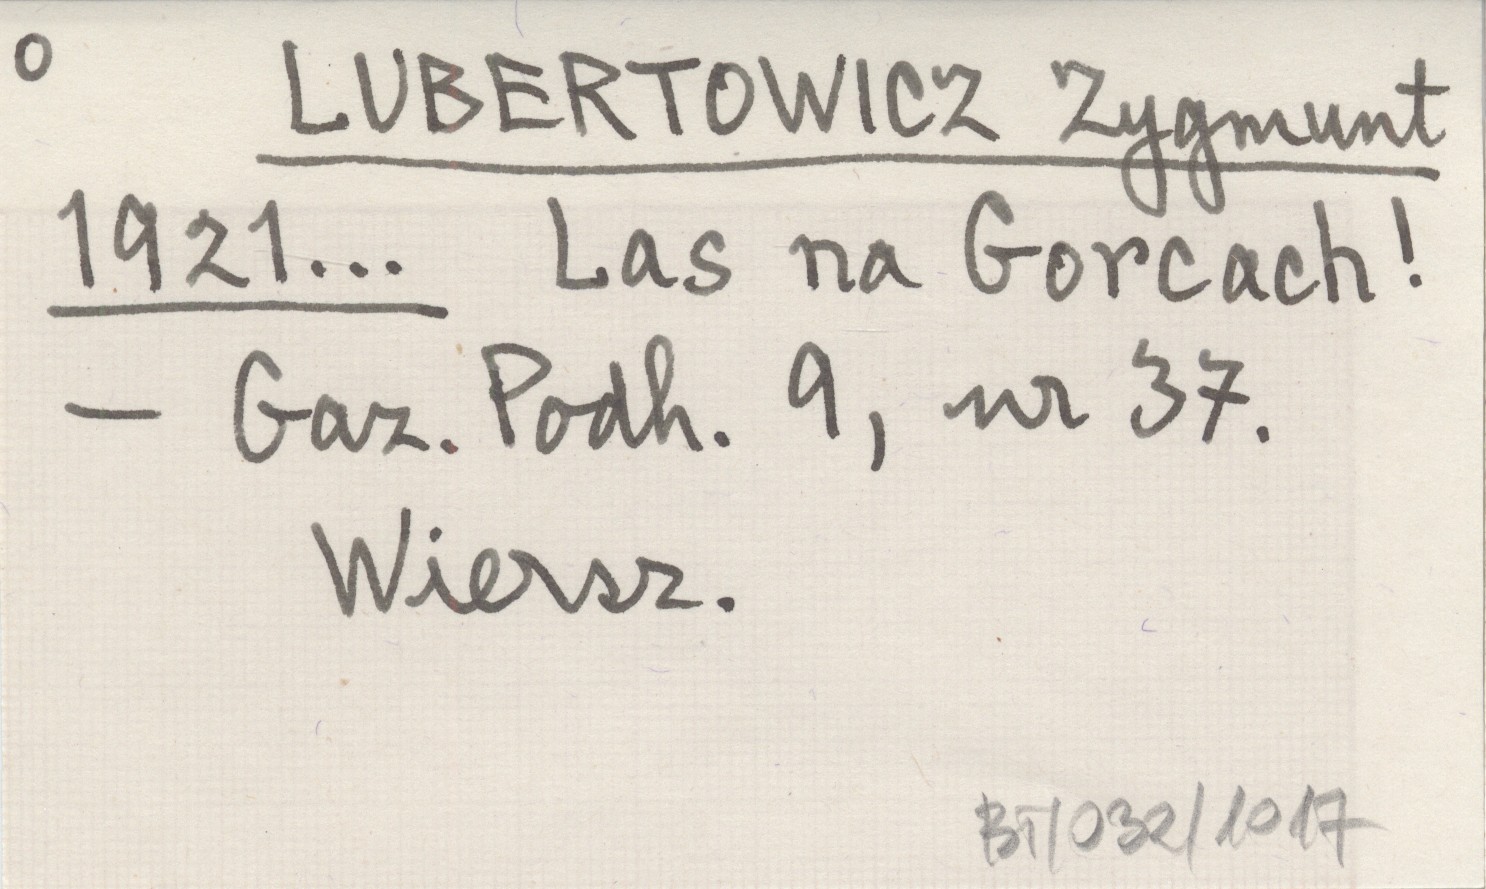 o LUBERTOWICZ Zygmunt
1921... Las na Gorcach!
— Gaz. Podh. 9, nr 37.
Wiersz.
BT/032/1017